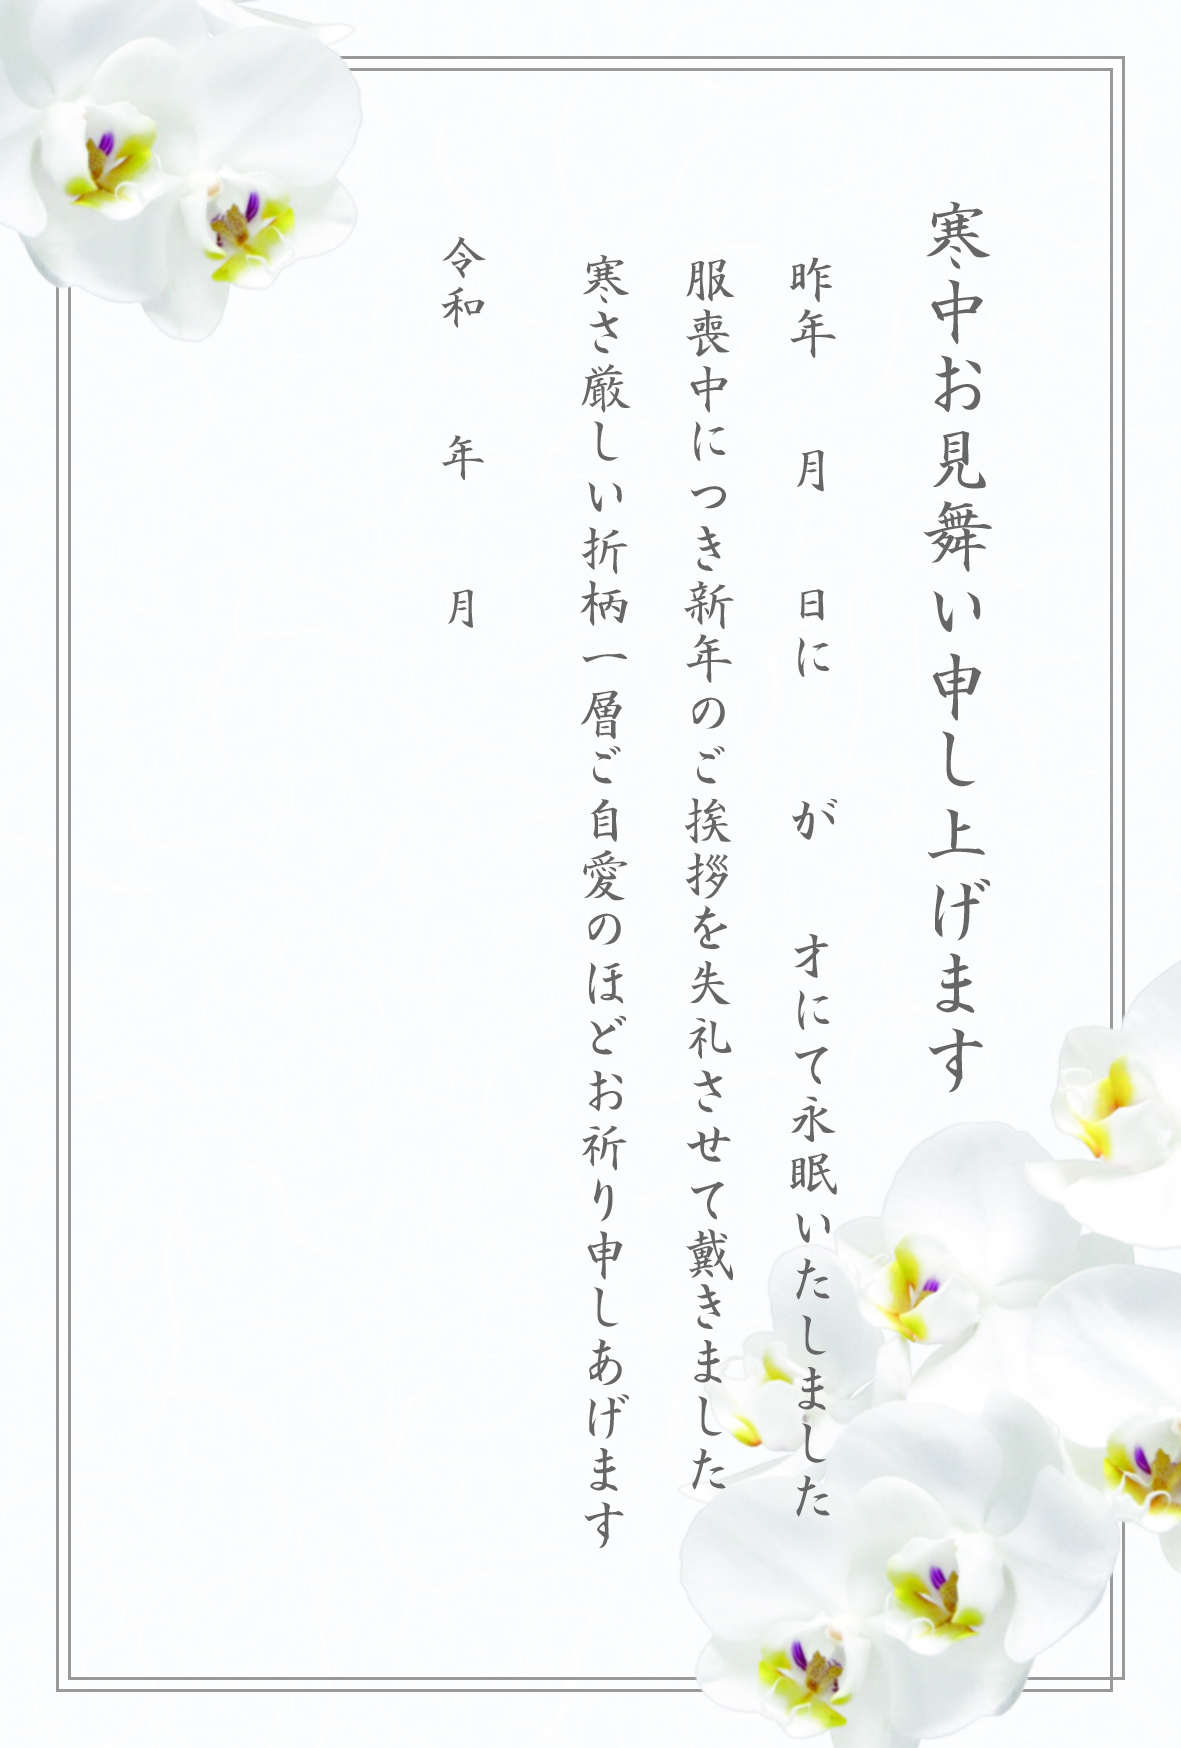 寒中お見舞い申し上げます
昨年　月　日に　が　才にて永眠いたしました
服喪中につき新年のご挨拶を失礼させて戴きました
寒さ厳しい折柄一層ご自愛のほどお祈り申しあげます
令和　年　月